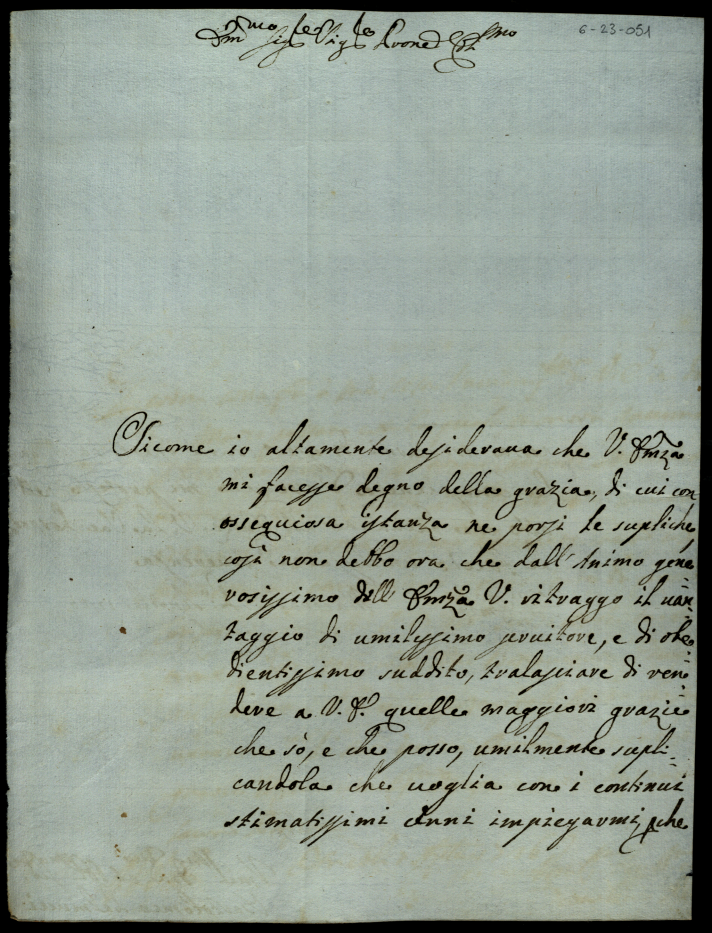 6-23-051
Em.mo Sig.re Sig.re Prone Col.mo
Sicome io altamente desiderava che V. Emza
mi facesse degno della grazia, di cui con
ossequiosa istanza ne porsi le supliche,
così non debbo ora che dall'Animo gene=
rosissimo dell' Emza V. ritraggo il van=
taggio di umilissimo servitore, e di obe=
dientissimo suddito, tralasciare di ren=
dere a V. E. quelle maggiori grazie
che sò, e che posso, umilmente supli=
candola che voglia con i continui
stimatissimi cenni impiegarmi, pche